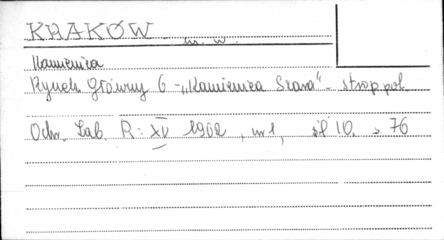 KRAKÓW m. w.
Kamienica
Rynek Główny 6 - „Kamienica Szara" - strop pol.
Ochr. Zab. R: XV 1962, nr 1, il 10. s 76